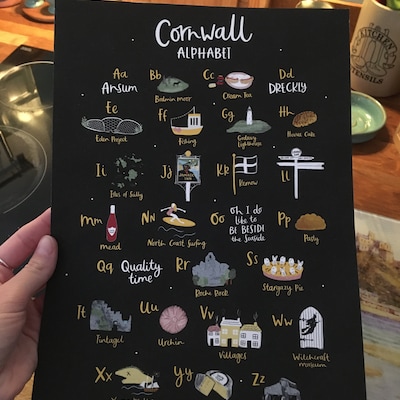 Cornwall
ALPHABET
Aa
Ansum
Bb
Bodmin moor
Cc
Cream Tea
Dd
DRECKLY
Ee
Eden Project
Ff
Fishing
Gg
Godrevy
Lighthouse
Hh
Hevva Cake
Ii
Isles of Scilly
Jj
JAMAICA
INN
Kk
Kernow
Ll
Mm
mead
Nn
North Coast Surfing
Oo
oh I do
like to
BE BESIDE
the Seaside
Pp
Pasty
Qq
Quality
time
Rr
Roche Rock
Ss
Stargazy Pie
Tt
Tintagel
Uu
Urchin
Vv
Villages
Ww
Witchcraft
museum
Xx
Yy
Zz
KITCHEN
UTENSILS